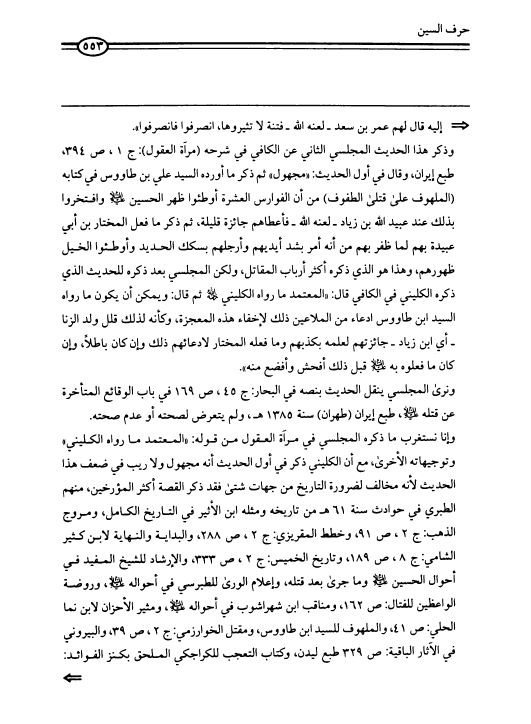 حرف السين
٥٥٣
⇐ إليه قال لهم عمر بن سعد ـ لعنه الله ـ فتنة لا تثيروها، انصرفوا فانصرفوا».
وذكر هذا الحديث المجلسي الثاني عن الكافي في شرحه (مرآة العقول): ج ١ ، ص ٣٩٤،
طبع إيران، وقال في أول الحديث: «مجهول» ثم ذكر ما أورده السيد علي بن طاووس في كتابه
(الملهوف علىٰ قتلىٰ الطفوف) من أن الفوارس العشرة أوطئوا ظهر الحسين ﵇ وافتخروا
بذلك عند عبيد الله بن زياد ـ لعنه الله ـ فأعطاهم جائزة قليلة، ثم ذكر ما فعل المختار بن أبي
عبيدة بهم لما ظفر بهم من أنه أمر بشد أيديهم وأرجلهم بسكك الحديد وأوطئوا الخيل
ظهورهم، وهذا هو الذي ذكره أكثر أرباب المقاتل، ولكن المجلسي بعد ذكره للحديث الذي
ذكره الكليني في الكافي قال: «المعتمد ما رواه الكليني ثم قال: ويمكن أن يكون ما رواه
السيد ابن طاووس ادعاء من الملاعين ذلك لإخفاء هذه المعجزة، وكأنه لذلك قلل ولد الزنا
ـ أي ابن زياد ـ جائزتهم لعلمه بكذبهم وما فعله المختار لادعائهم ذلك وإن كان باطلاً، وإن
كان ما فعلوه به ﵇ قبل ذلك أفحش وأفضع منه».
ونرىٰ المجلسي ينقل الحديث بنصه في البحار: ج ٤٥ ، ص ١٦٩ في باب الوقائع المتأخرة
عن قتله ﵇، طبع إيران (طهران) سنة ١٣٨٥ هـ ، ولم يتعرض لصحته أو عدم صحته.
وإنا نستغرب ما ذكره المجلسي في مرآة العقول من قوله: «المعتمد ما رواه الكليني»
وتوجيهاته الأخرىٰ، مع أن الكليني ذكر في أول الحديث أنه مجهول ولا ريب في ضعف هذا
الحديث لأنه مخالف لضرورة التاريخ من جهات شتىٰ فقد ذكر القصة أكثر المؤرخين، منهم
الطبري في حوادث سنة ٦١ هـ من تاريخه ومثله ابن الأثير في التاريخ الكامل، ومروج
الذهب: ج ٢ ، ص ٩١، وخطط المقريزي: ج ٢ ، ص ٢٨٨، والبداية والنهاية لابن كثير
الشامي: ج ٨ ، ص ١٨٩، وتاريخ الخميس: ج ٢ ، ص ٣٣٣، والإرشاد للشيخ المفيد في
أحوال الحسين ﵇ وما جرىٰ بعد قتله، وإعلام الورىٰ للطبرسي في أحواله ﵇، وروضة
الواعظين للفتال: ص ١٦٢، ومناقب ابن شهراشوب في أحواله ﵇، ومثير الأحزان لابن نما
الحلي: ص ٤١، والملهوف للسيد ابن طاووس، ومقتل الخوارزمي: ج ٢ ، ص ٣٩، والبيروني
في الآثار الباقية: ص ٣٢٩ طبع ليدن، وكتاب التعجب للكراجكي الملحق بكنز الفوائد:
⇐